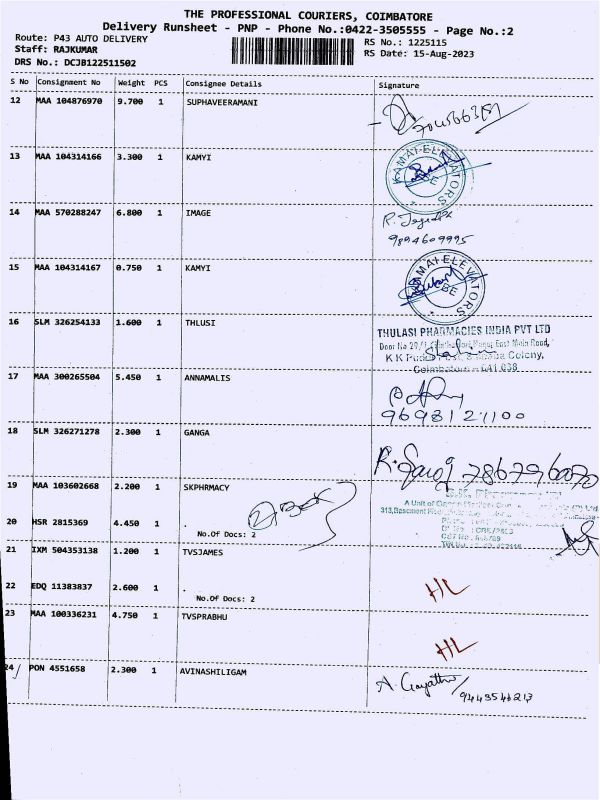 THE PROFESSIONAL COURIERS, COIMBATORE
Delivery Runsheet - PNP - Phone No.:0422-3505555 - Page No.:2
Route: P43 AUTO DELIVERY
RS No.: 1225115
Staff: RAJKUMAR
RS Date: 15-Aug-2023
DRS No.: DCJB122511502
S No Consignment No Weight PCS Consignee Details Signature
12 MAA 104876970 9.700 1 SUPHAVEERAMANI
13 MAA 104314166 3.300 1 KAMYI
14 MAA 570288247 6.800 1 IMAGE
9894609995
15 MAA 104314167 0.750 1 KAMYI
16 SLM 326254133 1.600 1 THLUSI
THULASI PHARMACIES INDIA PVT LTD
17 MAA 300265504 5.450 1 ANNAMALIS
9698121100
18 SLM 326271278 2.300 1 GANGA
7867796070
19 MAA 103602668 2.200 1 SKPHRMACY
20 HSR 2815369 4.450 1 .
No.Of Docs: 2
21 IXM 504353138 1.200 1 TVSJAMES
22 EDQ 11383837 2.600 1 .
No.Of Docs: 2
HL
23 MAA 100336231 4.750 1 TVSPRABHU
HL
24 PON 4551658 2.300 1 AVINASHILIGAM
A. Gayathri